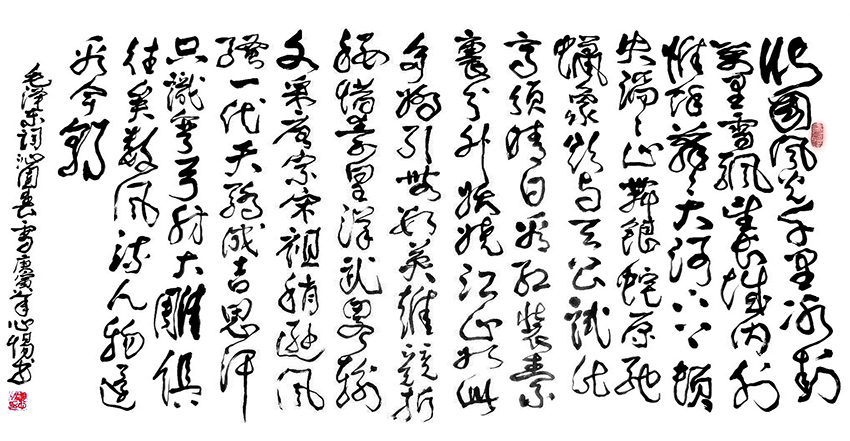 北國風光千里冰封
萬里雪飄望長城内外
惟餘莽莽大河上下頓
失滔滔山舞銀蛇原馳
蠟象欲與天公試比
高須晴日看紅裝素
裹分外妖嬈江山如此
多嬌引無數英雄競折
腰惜秦皇漢武略輸
文采唐宗宋祖稍遜風
騷一代天驕成吉思汗
只識彎弓射大雕俱
往矣數風流人物還
看今朝
毛澤東詞沁園春雪庚寅年心惕書